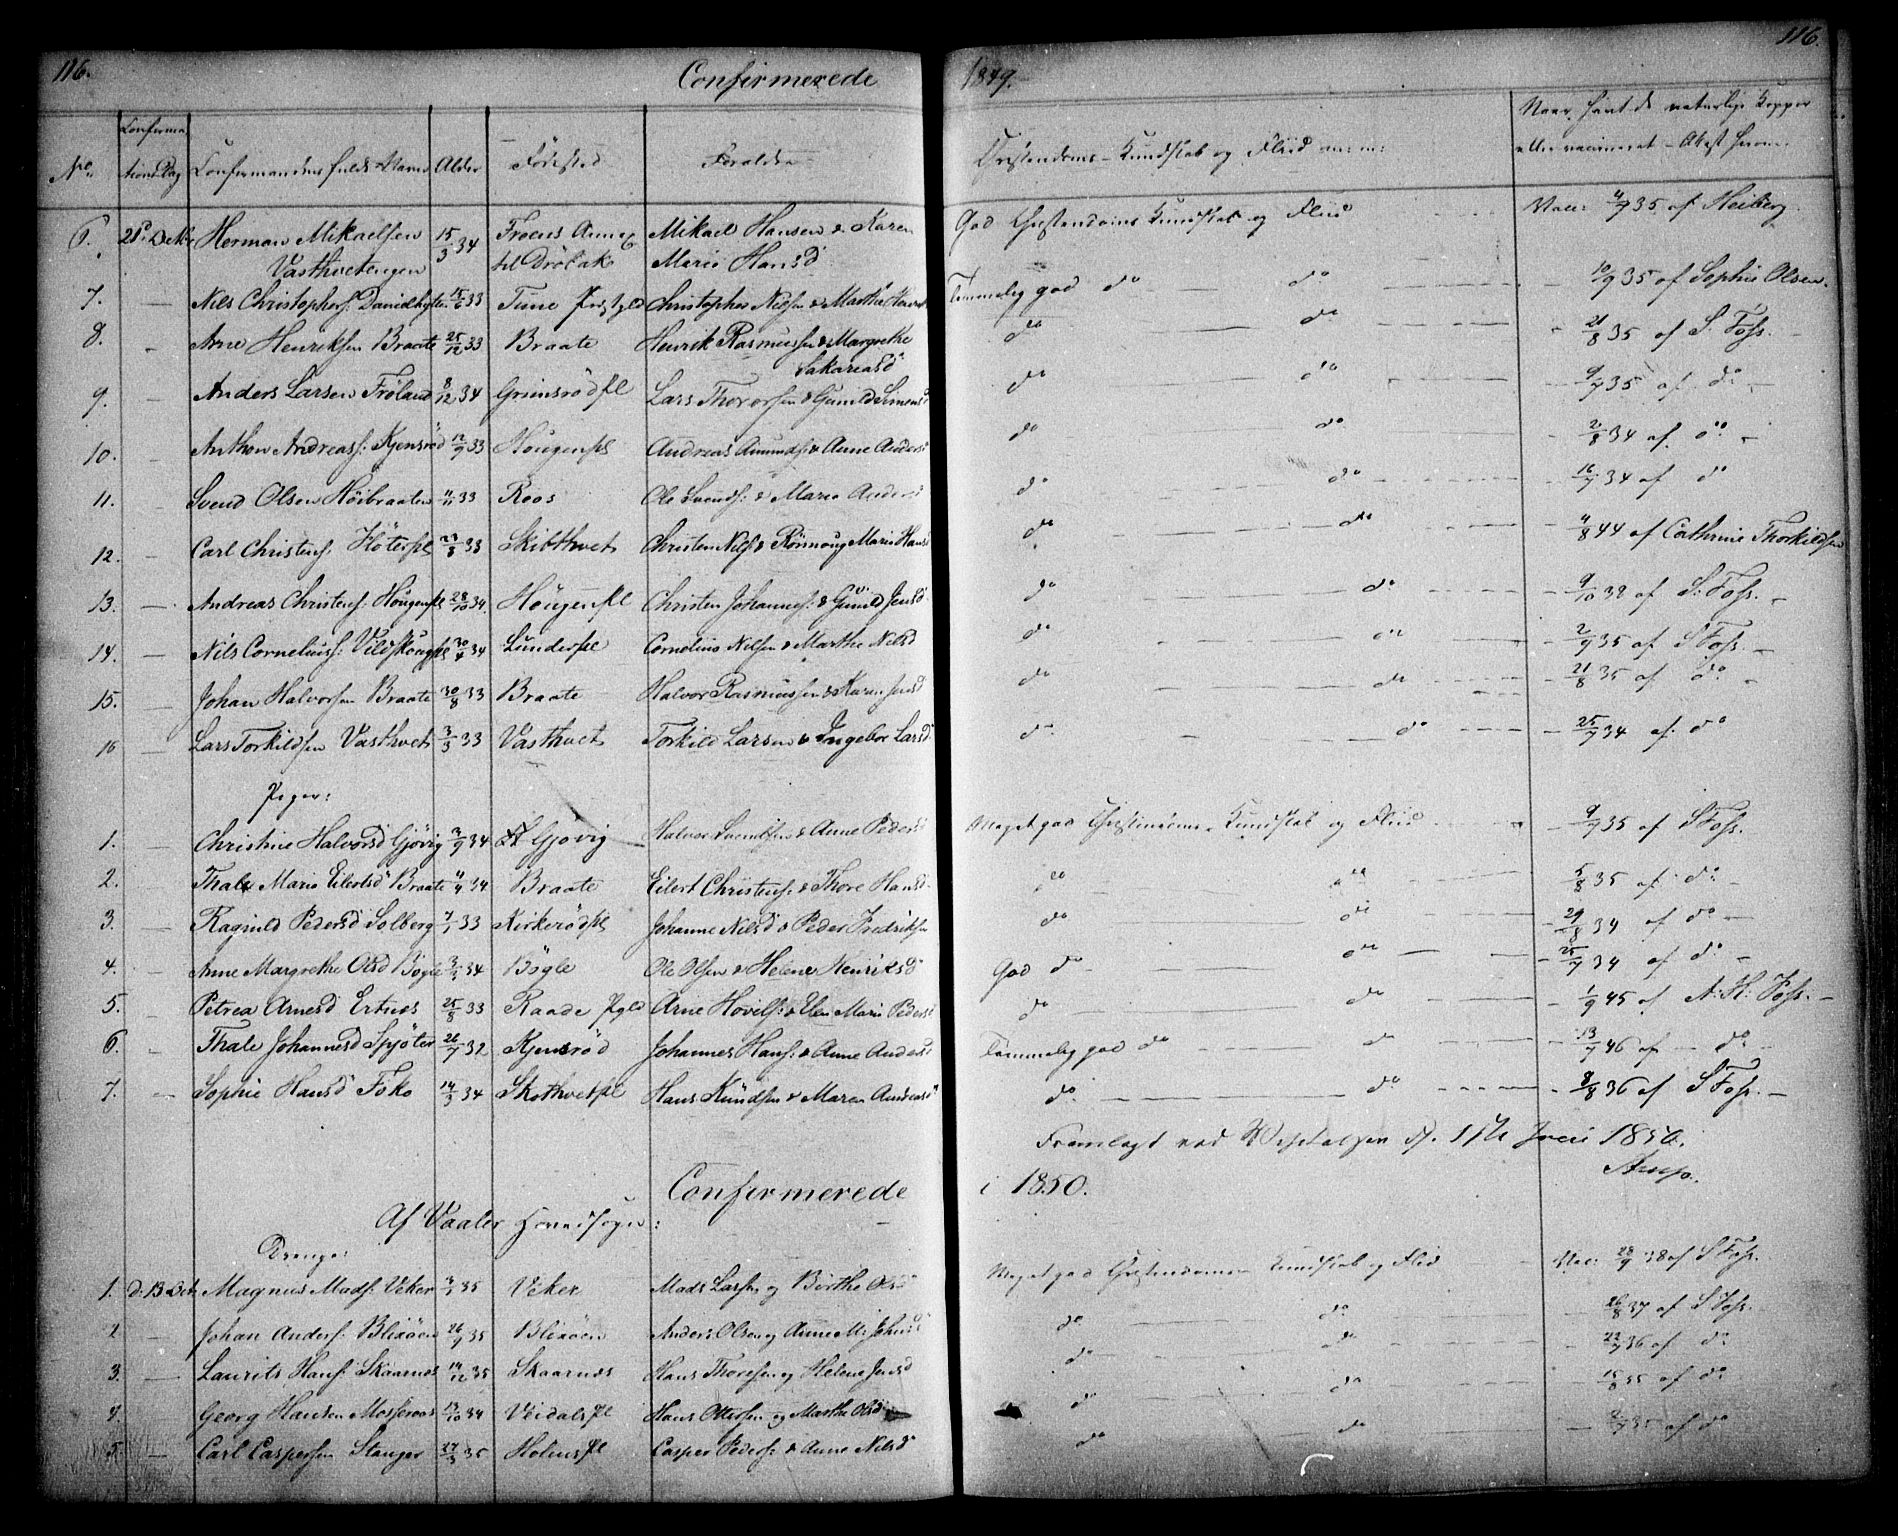 116. Confirmerede 1849. 116.
No. Confirmationsdag Confirmandens fulde Navn Alder Fødested Forældre Christendoms-Kundskab og Fliid m: m: Naar havt de naturlige Kopper
eller vaccineret - Attest herom.
6. 2den Dec Herman Mikaelsen 15/3 34 Froens Annex Mikael Hansen & Karen God Christendoms Kundskab og Fliid Vacc: 4/7 35 af Heiberg
Vasthvetengen til Drøbak Marie Hansd
7. — Nils Christophers: Davidhytten 15/6 33 Tune Præstgjeld Christopher Nilsen & Marthe Temmelig god do do 10/9 35 af Sophie Olsen.
8. — Arne Henriksen Braate 25/12 33 Braate Henrik Rasmussen & Margrethe do do 21/8 35 af S. Foss.
Sakariasd
9. — Anders Larsen Frøland 8/12 34 Grimsrødpl Lars Thorersen & Gunild Simensd do do 9/7 35 af do
10. — Anthon Andreass: Kjensrød 12/9 33 Hougenpl Andreas Amunds: & Anne Andersd do do 2/8 34 af do
11. Svend Olsen Høibraaten 11/11 33 Roos Ole Svends: & Marie Andersd do do 16/7 34 af do
12. Carl Christens: Höterpl 23/8 33 Skibthvet Christen Nils: & Marie Hansd do do 4/8 44 af Cathrine Thorkildsen
13. — Andreas Christens: Hougenpl 28/10 34. Hougenpl Christen Johanness: & Gunild Jensd do do 9/10 38 af S: Foss.
14. — Nils Corneliuss: Vildskougpl 30/4 34 Lunderpl Cornelius Nilsen & Marthe Nilsd do do 2/9 35 af S Foss.
15. — Johan Halvorsen Braate 30/8 33 Braate Halvor Rasmussen & Karen Jensd do do 21/8 35 af do
16 — Lars Torkildsen Vasthvet 3/3 33 Vasthvet Torkild Larsen & Ingebor Larsd do do 25/7 34 af do
Piger:
1. Christine Halvorsd Gjøvig 3/9 34 Gjøvig Halvor Svendsen & Anne Pedersd Meget god Christendoms-Kundskab og Fliid 9/7 35 af S Foss.
2. — Thale Marie Eilertsd Braate 11/4 34 Braate Eilert Christens: & Thore Hansd do do 5/8 35 af do
3. — Ragnild Pedersd Solberg 7/1 33 Kirkerødpl Johanne Nilsd & Peder Fredriksen do do 29/8 34 af do
4. — Anne Margrethe Olsd Bøgle 3/3 34 Bøgle Ole Olsen & Helene Henriksd God do do 25/7 34 af do
5. — Petrea Arnesd Ertnes 25/8 33 Raade Pgld Arne Hovels: & Elen Marie Pedersd do do 1/9 45 af A: H: Foss.
6. — Thale Johannesd Spjøter 26/7 32 Kjensrød Johannes Hans: & Anne Andersd Temmelig god do do 13/7 46 af do
7. — Sophie Hansd Foko 14/3 34 Skothvetpl Hans Knudsen & Maren Andersd do do 8/8 36 af S Foss.
Fremlagt ved Visitatsen d. 17de Juni 1850.
Arup.
Confirmerede i 1850.
Af Vaaler Hovedsogn:
Drenge:
1. D. 13 Oct Magnus Mads: Veker 4/1 35 Veker Mads Larsen og Birthe Olsd Meget god Christendoms-Kundskab og Fliid Vac: 28/9 38 af S Foss.
2 — Johan Anders: Blixøen 26/9 35 Blixøen Anders Olsen og Anne M: Johansd do do 26/8 37 af S Foss.
3. — Laurits Hans: Skaarnæs 14/12 35 Skaarnæs Hans Thoresen og Helene Jensd do do 22/7 36 af do
4. — Georg Hansen Mosseroos 13/10 34 Veidalspl Hans Ottersen og Marthe Olsd do do 15/8 35 af do
5. — Carl Caspersen Stanger 27/3 35 Holinspl Casper Peders: & Anne Nilsd do do 2/7 35 af do